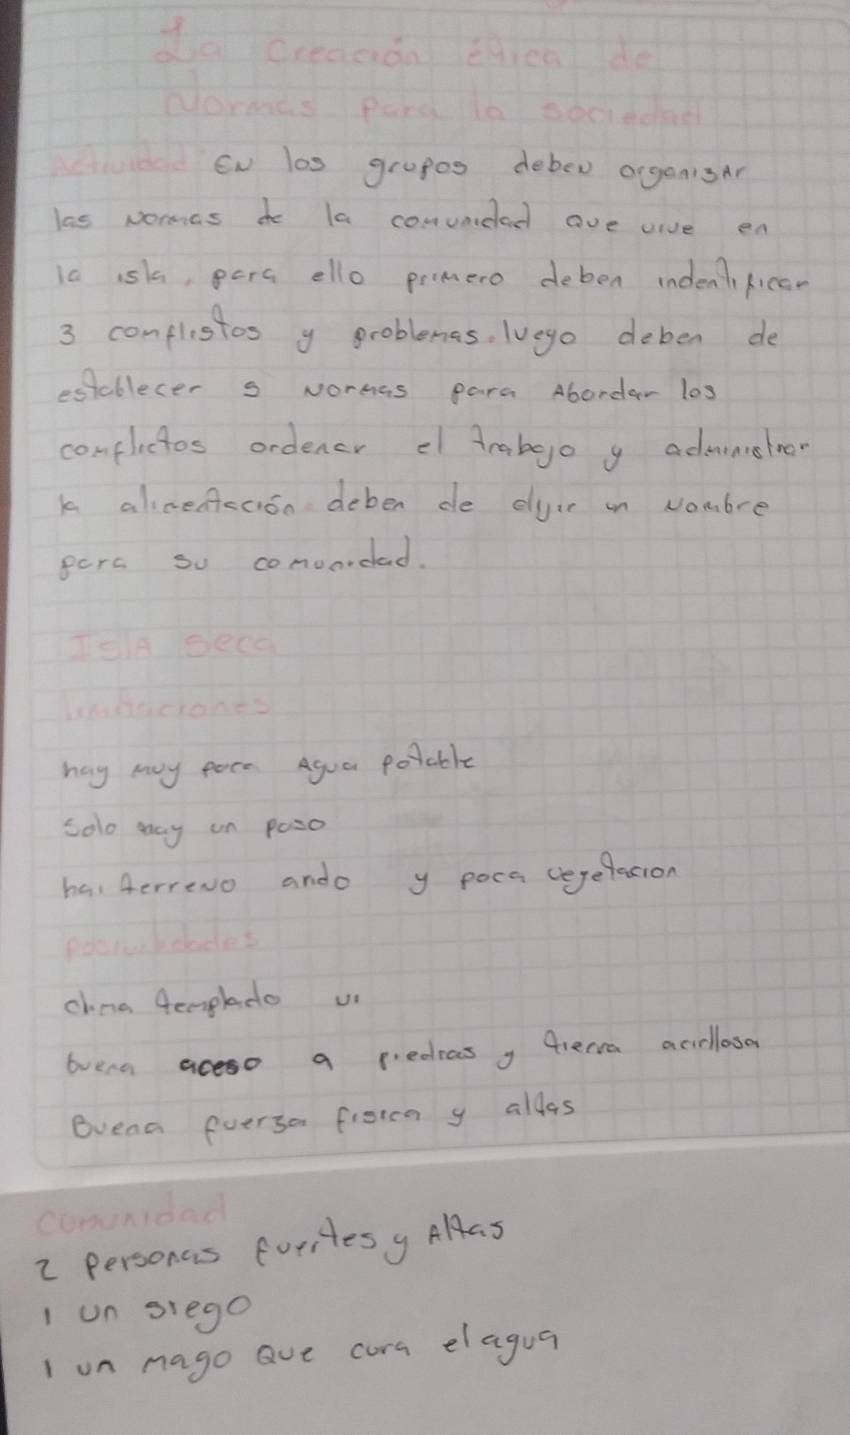 La creación ética de
Normas para la sociedad
Actividad EN los grupos deben organisar
las Normas de la comunidad que vive en
la isla, para ello primero deben indentificar
3 conflistos y problemas. luego deben de
establecer 5 Normas para Abordar los
conflictos ordenar el trabajo y administrar
la alimentación deben de elyir un Nombre
para su comunidad.
ISlA seca
limitaciones
hay muy poca Agua potable
solo hay un poso
hai terreno arido y poca vegetacion
posivilidades
clima templado
buena aceso a piedras y tierra acirllosa
Buena fuersa fisica y altas
comunidad
2 personas fuertes y Altas
1 un siego
1 un mago Que cura el agua